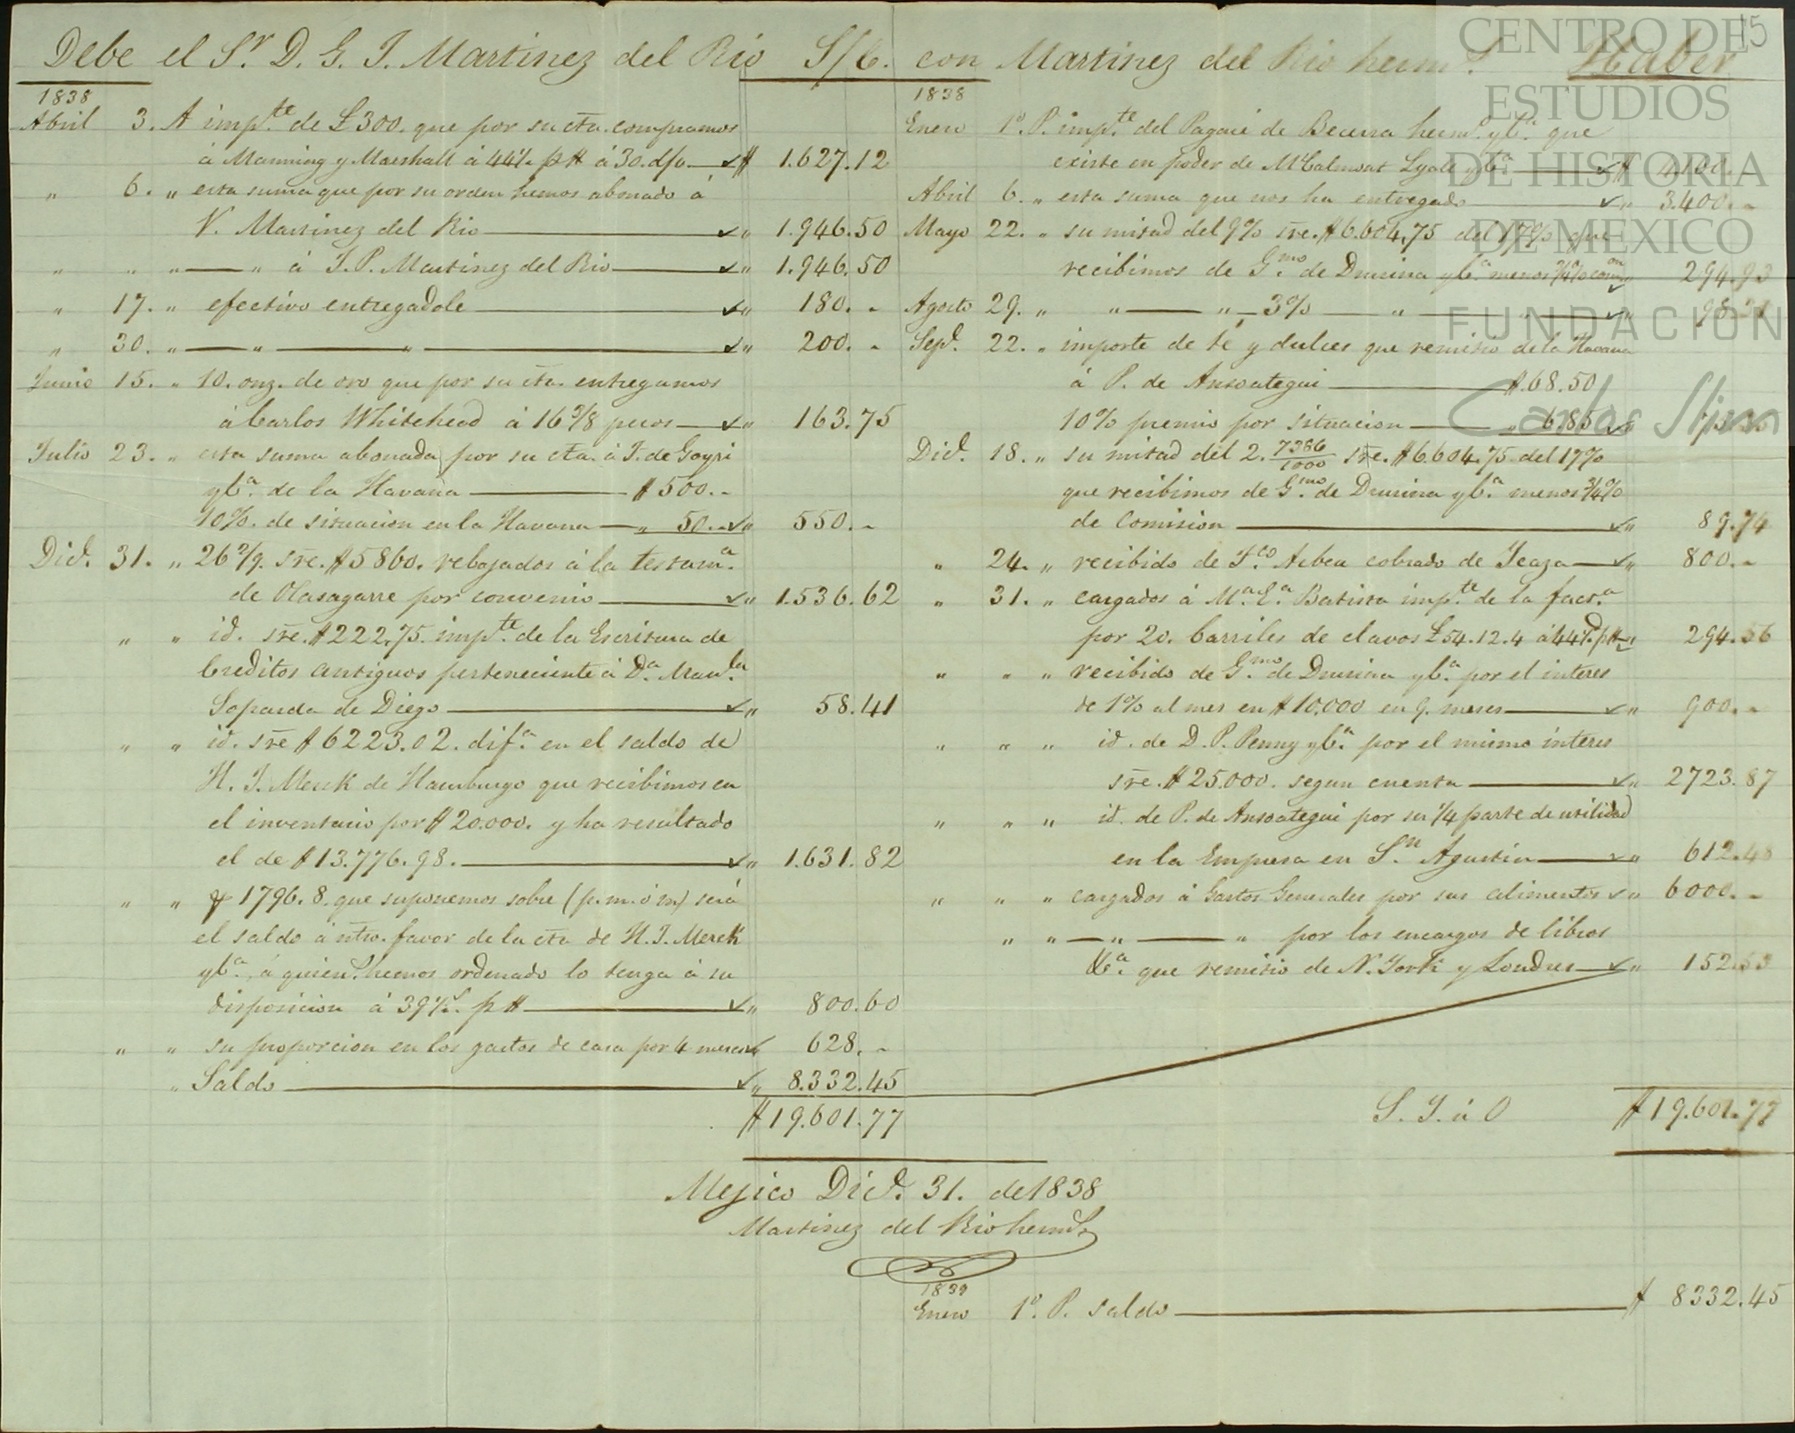 15
CENTRO DE
ESTUDIOS
DE HISTORIA
DE MEXICO
FUNDACION
Carlos Slim
Debe el Sr. D. G. J. Martinez del Rio S/C. con Martinez del Rio hermˢ. Haber
1838
Abril 3. A impᵗᵉ de £300. que por su cta. compramos
á Manning y Marshall á 44½ p $ á 30. d/v. $ 1.627.12
" 6. " esta suma que por su orden hemos abonado á
V. Martinez del Rio " 1.946.50
" " " — " á J. P. Martinez del Rio " 1.946.50
" 17. " efectivo entregadole " 180. -
" 30. " — " — " — " 200. -
Junio 15. " 10. onz. de oro que por su cta. entregamos
á Carlos Whitehead á 16 3/8 pesos " 163.75
Julio 23. " esta suma abonada por su cta. á J. de Goyri
y Cª. de la Havana $ 500. -
10%. de situacion en la Havana " 50. - " 550. -
Dicᵉ. 31. " 26 2/9. sre. $ 5860. rebajados á la testamª.
de Olasagarre por convenio " 1.536.62
" " id. sre. $ 222,75. impᵗᵉ. de la Escritura de
Creditos antiguos perteneciente á Dª. Manˡᵃ
Soparda de Diego " 58.41
" " id. sre $ 6223.02. difª. en el saldo de
H. J. Merck de Hamburgo que recibimos en
el inventario por $ 20.000. y ha resultado
el de $ 13.776.98. " 1.631.82
" " 1796.8. que suponemos sobre (p. m. ó m) será
el saldo á ntro. favor de la cta de H. J. Merck
y Cª. á quien hemos ordenado lo tenga á su
disposicion á 39½. p $ " 800.60
" " su proporcion en los gastos de casa por 4 meses 628. -
" Saldo " 8.332.45
$ 19.601.77
1838
Enero 1º. P. impᵗᵉ del Pagaré de Becerra hermˢ. y Cª. que
existe en poder de McCalmont Lyall y Cª $ 4.100. -
Abril 6. " esta suma que nos ha entregado " 3.400. -
Mayo 22. " su mitad del 9% sre. $ 6.604,75 del 17% que
recibimos de Gᵐᵒ. de Drusina y Cª. menos ¾% comᵒⁿ " 294.93
Agosto 29. " " — " — 3% — " — " 98.31
Sepᵉ. 22. " importe de té y dulces que remitió de la Havana
á P. de Ansoategui $ 68.50
10% premio por situacion " 6.85 " 75.35
Dicᵉ. 18. " su mitad del 2. 7386/1000 sre. $ 6.604.75 del 17%
que recibimos de Gᵐᵒ. de Drusina y Cª. menos ¾%
de Comision " 89.74
" 24. " recibido de Fᶜᵒ Arbeu cobrado de Icaza " 800. -
" 31. " cargados á Mª. Eª. Batista impᵗᵉ. de la factª
por 20. barriles de clavos £ 54.12.4 á 44½ᵈ. p $ " 294.56
" " " recibido de Gᵐᵒ. de Drusina y Cª. por el interes
de 1% al mes en $ 10.000 en 9. meses " 900. -
" " " id. de D. P. Penny y Cª. por el mismo interes
sre. $ 25.000. segun cuenta " 2723.87
" " " id. de P. de Ansoategui por su ¼ parte de utilidad
en la Empresa en Sⁿ. Agustin " 612.48
" " " cargados á Gastos Generales por sus alimentos " 6000. -
" " — " — " por los encargos de libros
&ª. que remitió de N. York y Londres " 152.53
S. Y. ú O $ 19.601.77
Mejico Dicᵉ. 31. de 1838
Martinez del Rio hermˢ
1839
Enero 1º. P. saldo $ 8332.45